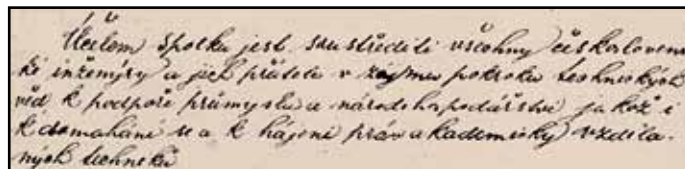 Účelom spolku jest sústrediti všechny československé
ké inženýry a jich přátele v zájmu pokroku technických
věd k podpoře průmyslu a národohospodářství jakož i
k domáhání se a k hájení práv akademicky vzděla-
ných techniků